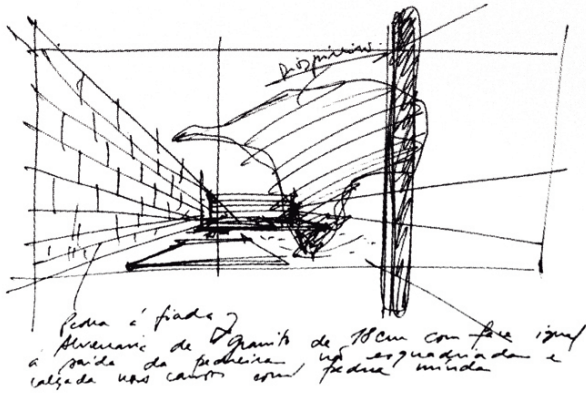 Diospireiro
Pedra á fiada
Alvenaria de granito de 18cm com face igual
á saída da pedreira não esquadriada e
calçada nos cantos com pedra miúda